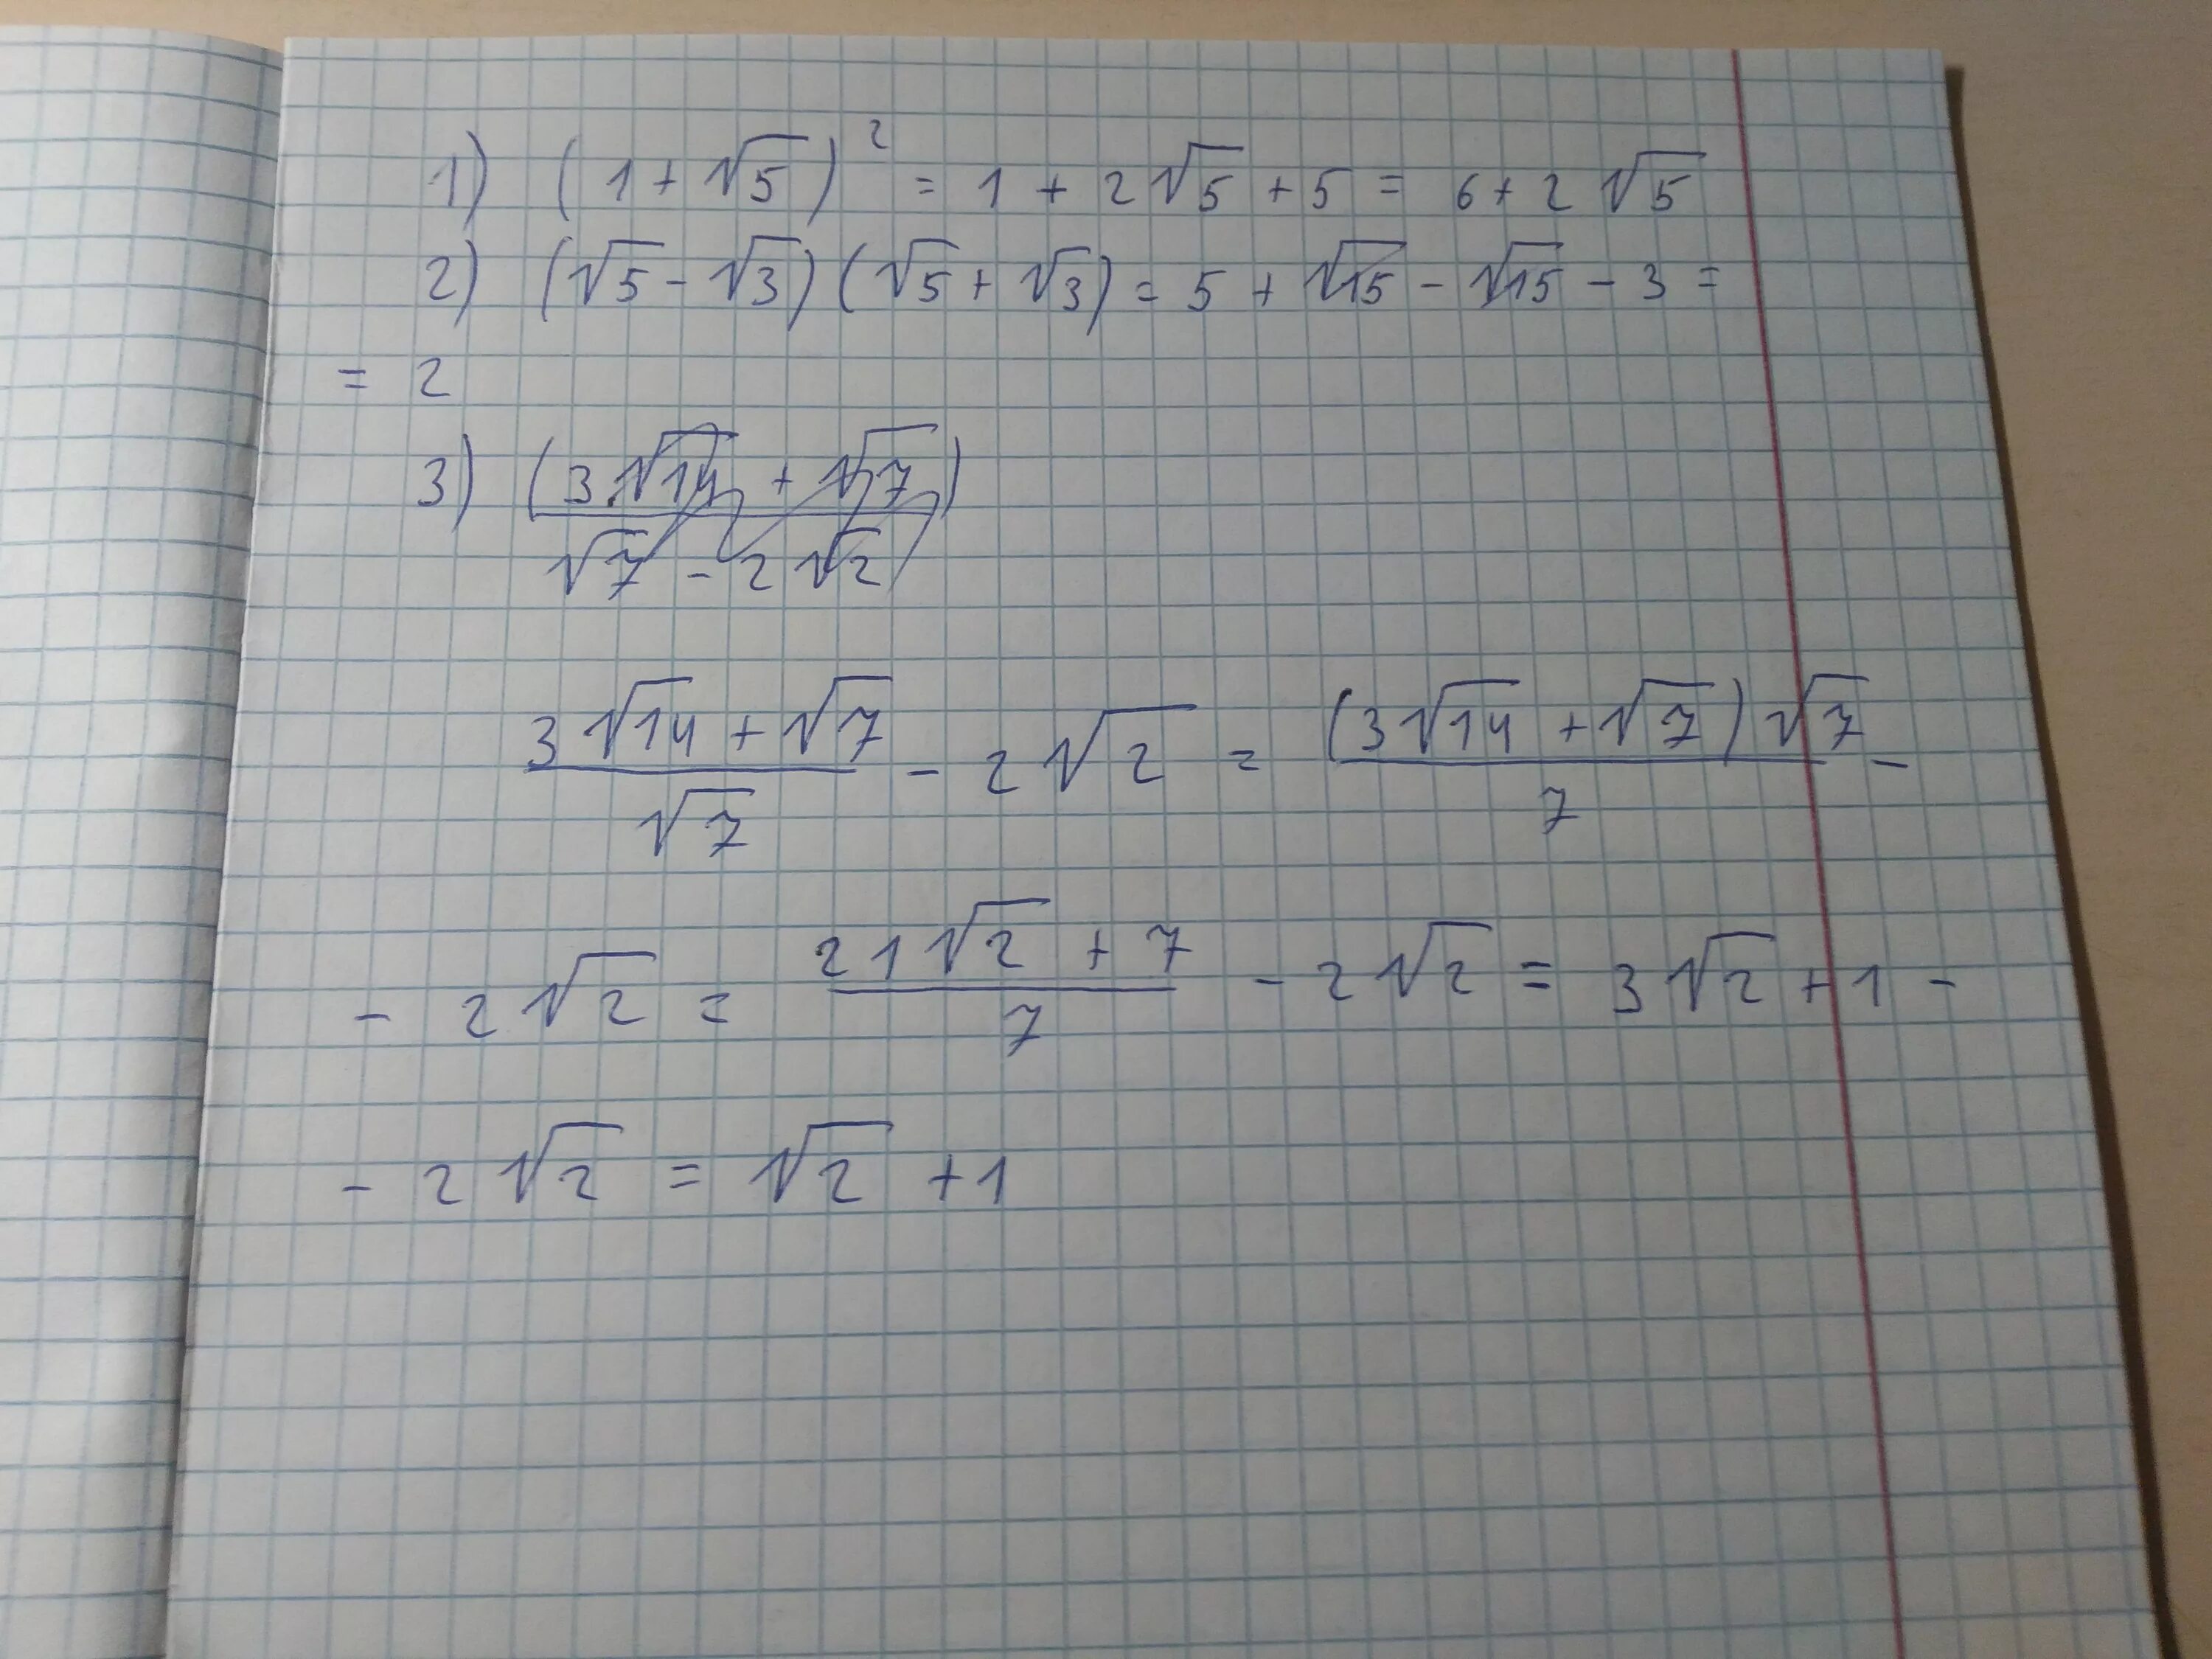 1) (1 + √5)² = 1 + 2√5 + 5 = 6 + 2√5
2) (√5 - √3)(√5 + √3) = 5 + √15 - √15 - 3 =
= 2
3) (3√14 + √7)
√7 - 2√2
3√14 + √7 / √7 - 2√2 = (3√14 + √7)√7 / 7 -
- 2√2 = 21√2 + 7 / 7 - 2√2 = 3√2 + 1 -
- 2√2 = √2 + 1